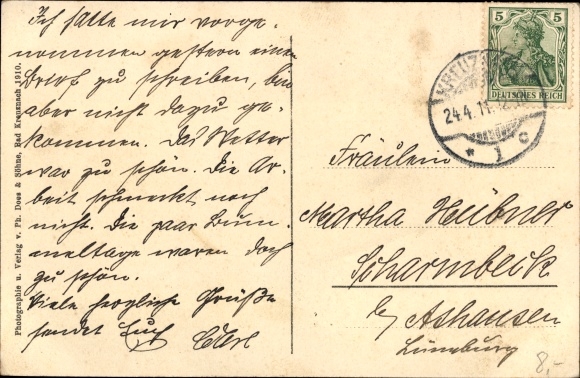 Ich hatte mir vorge-
nommen gestern einen
Brief zu schreiben, bin
aber nicht dazu ge-
kommen. Das Wetter
war zu schön. Die Ar-
beit schmeckt noch
nicht. Die paar Bum-
meltage waren doch
zu schön.
Viele herzliche Grüße
sendet Euch
Photographie u. Verlag v. Ph. Dees & Söhne, Bad Kreuznach 1910.
5 5
DEUTSCHES REICH
KREUZ
24.4.11.
* 1 c
Fräulein
Martha Hübner
Scharmbeck
b/ Ashausen
Lüneburg
8,-